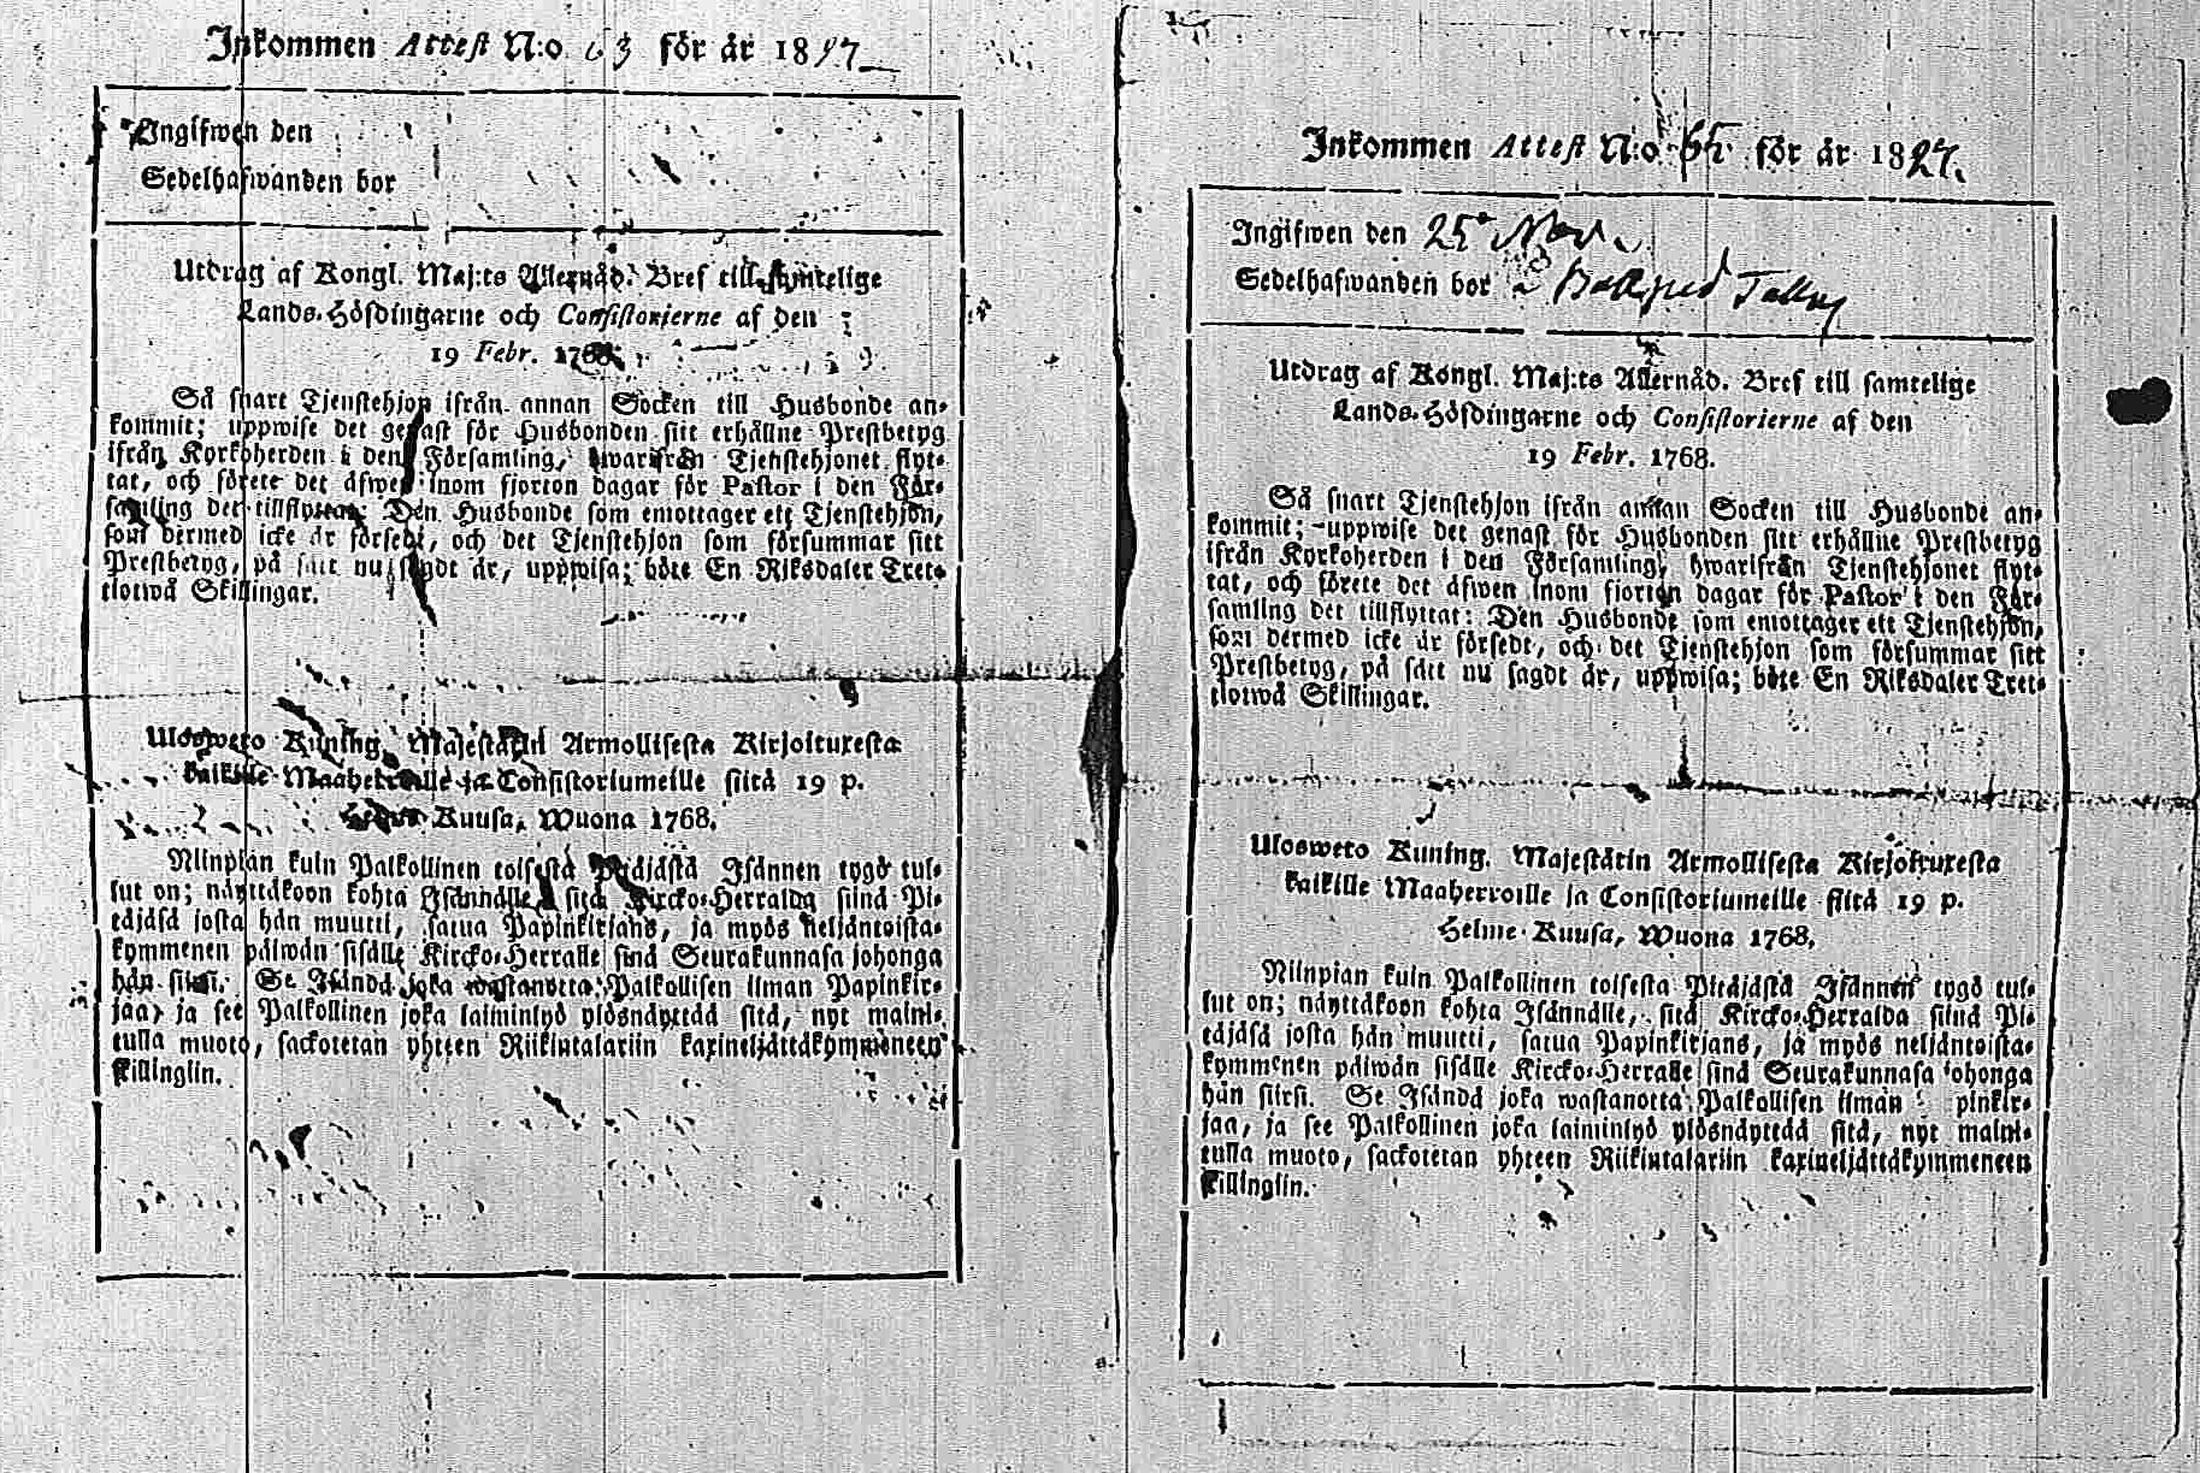 Inkommen Attest N:o 63 för år 1827
Ingifwen den
Sedelhafwanden bor
Utdrag af Kongl. Maj:ts Allernåd. Bref till samtelige
Lands-Höfdingarne och Consistorierne af den
19 Febr. 1768.
Så snart Tjenstehjon ifrån annan Socken till Husbonde an-
kommit; uppwise det genast för Husbonden sitt erhållne Prestbetyg
ifrån Kyrkoherden i den Församling, hwarifrån Tjenstehjonet flyt-
tat, och förete det äfwen inom fjorton dagar för Pastor i den För-
samling det tillflyttat: Den Husbonde som emottager ett Tjenstehjon,
som dermed icke är försedt, och det Tjenstehjon som försummar sitt
Prestbetyg, på sätt nu sagdt är, uppwisa; böte En Riksdaler Tret-
tiotwå Skillingar.
Ulosweto Kuning. Majestätin Armollisesta Kirjoituxesta
kaikille Maaherroille ja Consistoriumeille siitä 19 p.
Helme Kuusa, Wuona 1768.
Niinpian kuin Palkollinen toisesta Pitäjästä Isännen tygö tul-
lut on; näyttäkoon kohta Isännälle, sitä Kircko-Herralda siinä Pi-
täjäsä josta hän muutti, saatua Papinkirjans, ja myös neljäntoista-
kymmenen päiwän sisälle Kircko-Herralle siinä Seurakunnasa johonga
hän siirsi. Se Isändä joka wastanotta Palkollisen ilman Papinkir-
jaa, ja see Palkollinen joka laiminlyö ylösnäyttää sitä, nyt maini-
tulla muoto, sackotetan yhteen Riikintalariin kaxineljättäkymmeneen
killingiin.
Inkommen Attest N:o för år 1827.
Ingifwen den 25 Nov.
Sedelhafwanden bor
Utdrag af Kongl. Maj:ts Allernåd. Bref till samtelige
Lands-Höfdingarne och Consistorierne af den
19 Febr. 1768.
Så snart Tjenstehjon ifrån annan Socken till Husbonde an-
kommit; uppwise det genast för Husbonden sitt erhållne Prestbetyg
ifrån Kyrkoherden i den Församling, hwarifrån Tjenstehjonet flyt-
tat, och förete det äfwen inom fjorton dagar för Pastor i den För-
samling det tillflyttat: Den Husbonde som emottager ett Tjenstehjon,
som dermed icke är försedt, och det Tjenstehjon som försummar sitt
Prestbetyg, på sätt nu sagdt är, uppwisa; böte En Riksdaler Tret-
tiotwå Skillingar.
Ulosweto Kuning. Majestätin Armollisesta Kirjoituxesta
kaikille Maaherroille ja Consistoriumeille siitä 19 p.
Helme Kuusa, Wuona 1768.
Niinpian kuin Palkollinen toisesta Pitäjästä Isännen tygö tul-
lut on; näyttäkoon kohta Isännälle, sitä Kircko-Herralda siinä Pi-
täjäsä josta hän muutti, saatua Papinkirjans, ja myös neljäntoista-
kymmenen päiwän sisälle Kircko-Herralle siinä Seurakunnasa johonga
hän siirsi. Se Isändä joka wastanotta Palkollisen ilman pinkir-
jaa, ja see Palkollinen joka laiminlyö ylösnäyttää sitä, nyt maini-
tulla muoto, sackotetan yhteen Riikintalariin kaxineljättäkymmeneen
killingiin.